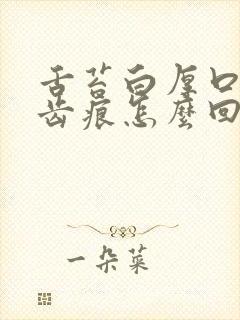 舌苔白厚口
齿痕怎麽回
一朵菜